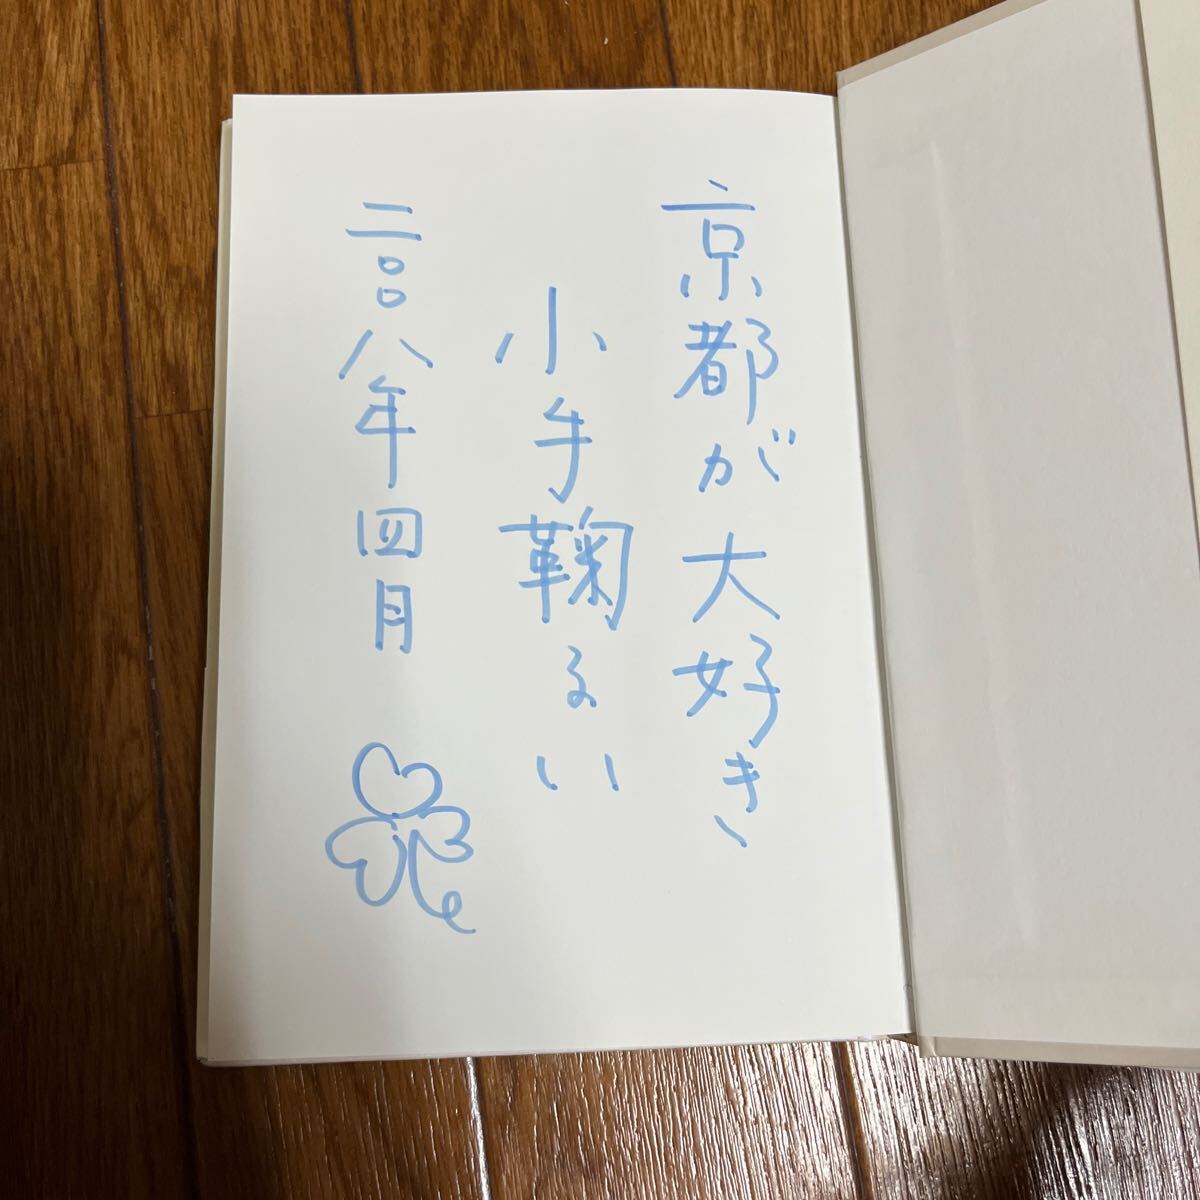 京都が大好き
小手鞠るい
二〇〇八年四月